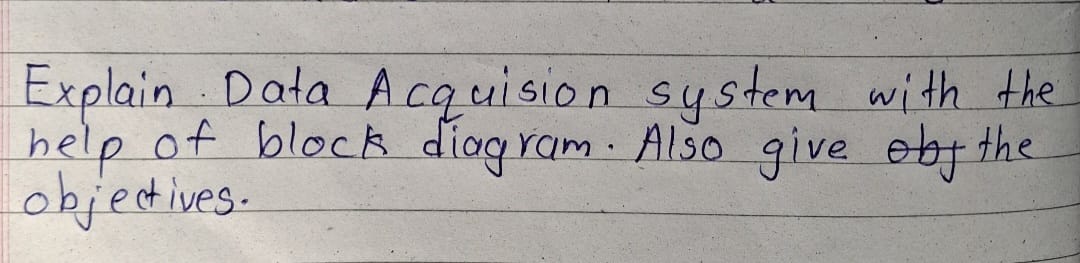 Explain. Data Acquision system with the
help of block diagram. Also give obj the
objectives.